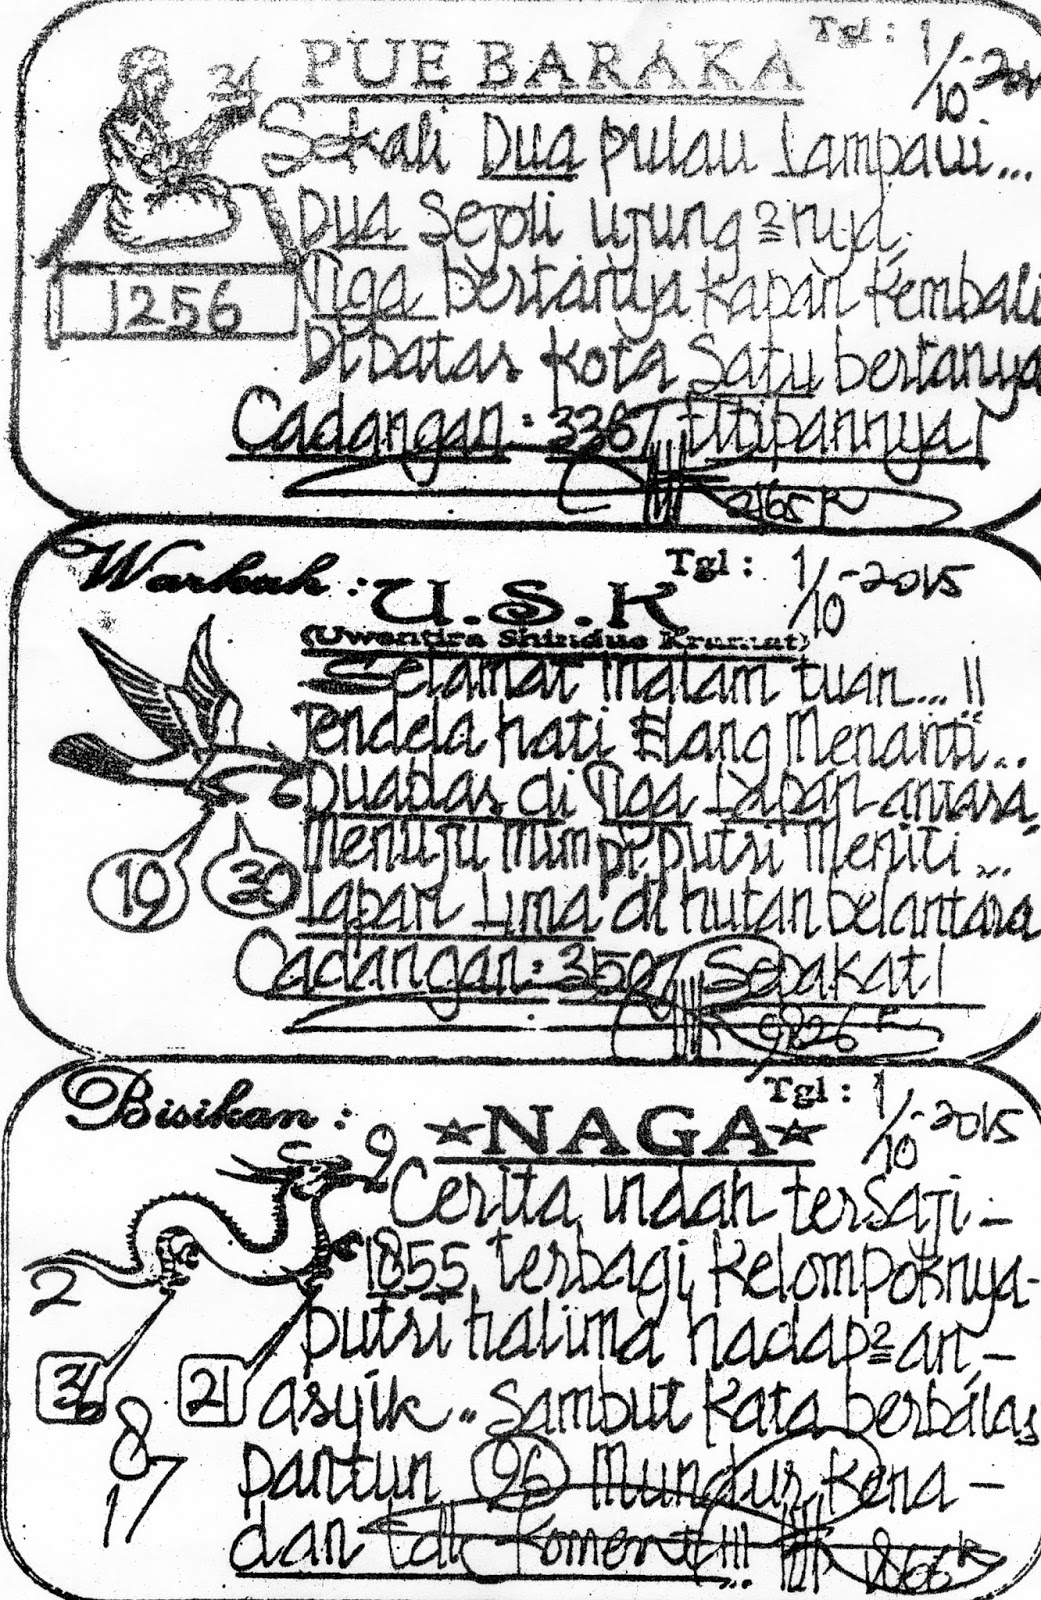 PUE BARAKA
Tgl : 1/10-201
34
Sekali Dua pulau Lampaui...
Dua Sejoli ujung 2nya,
Tiga bertanya Kapan Kembali
1256
Dibatas Kota Satu bertanya
Cadangan : 3367 titipannya!
2165 R
Warkah : U.S.K
Tgl : 1/10-2015
(Uwentira Shindue Kramat)
Selamat malam tuan...!!
Jendela hati Elang Menanti...
6 Duablas di Tiga Lapan antara,
Menuju mimpi putri Meniti...
19 30
Lapan Lima di hutan belantara
Cadangan : 3597 Sepakat!
9826 R
Bisikan : NAGA
Tgl : 1/10-2015
9
Cerita indah tersaji -
1855 terbagi Kelompoknya-
2
putri halima hadap2an, -
36 21
asyik.. Sambut Kata berbalas
8
17
pantun 96 Mundur Kena -
dan tdk Koment!!!
1866 R